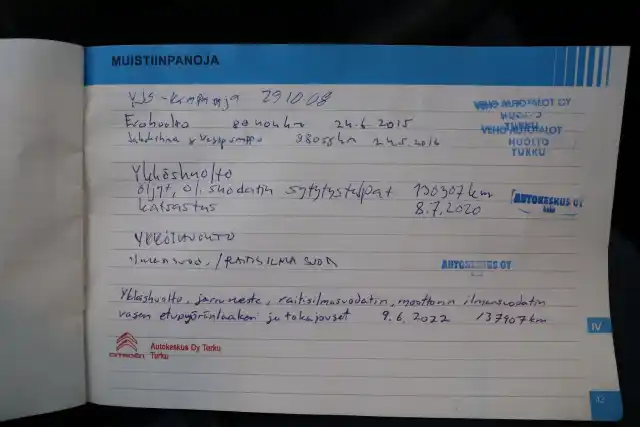 MUISTIINPANOJA
29.10.08
VEHO AUTOTALOT OY
HUOLTO
TURKU
24.6 2015
VEHO AUTOTALOT
HUOLTO
TURKU
Jakohihna & Vesipumppu 98055km 24.5.2016
Ykköshuolto
öljyt, öl. suodatin sytytystulpat 130307 km
katsastus 8.7.2020
AUTOKESKUS OY
YKKÖSHUOLTO
AUTOKESKUS OY
Ykköshuolto, jarruneste, raitisilmasuodatin, moottorin ilmansuodatin
vasen etupyöränlaakeri ja takajouset 9.6.2022 137907 km
IV
CITROËN
Autokeskus Oy Turku
Turku